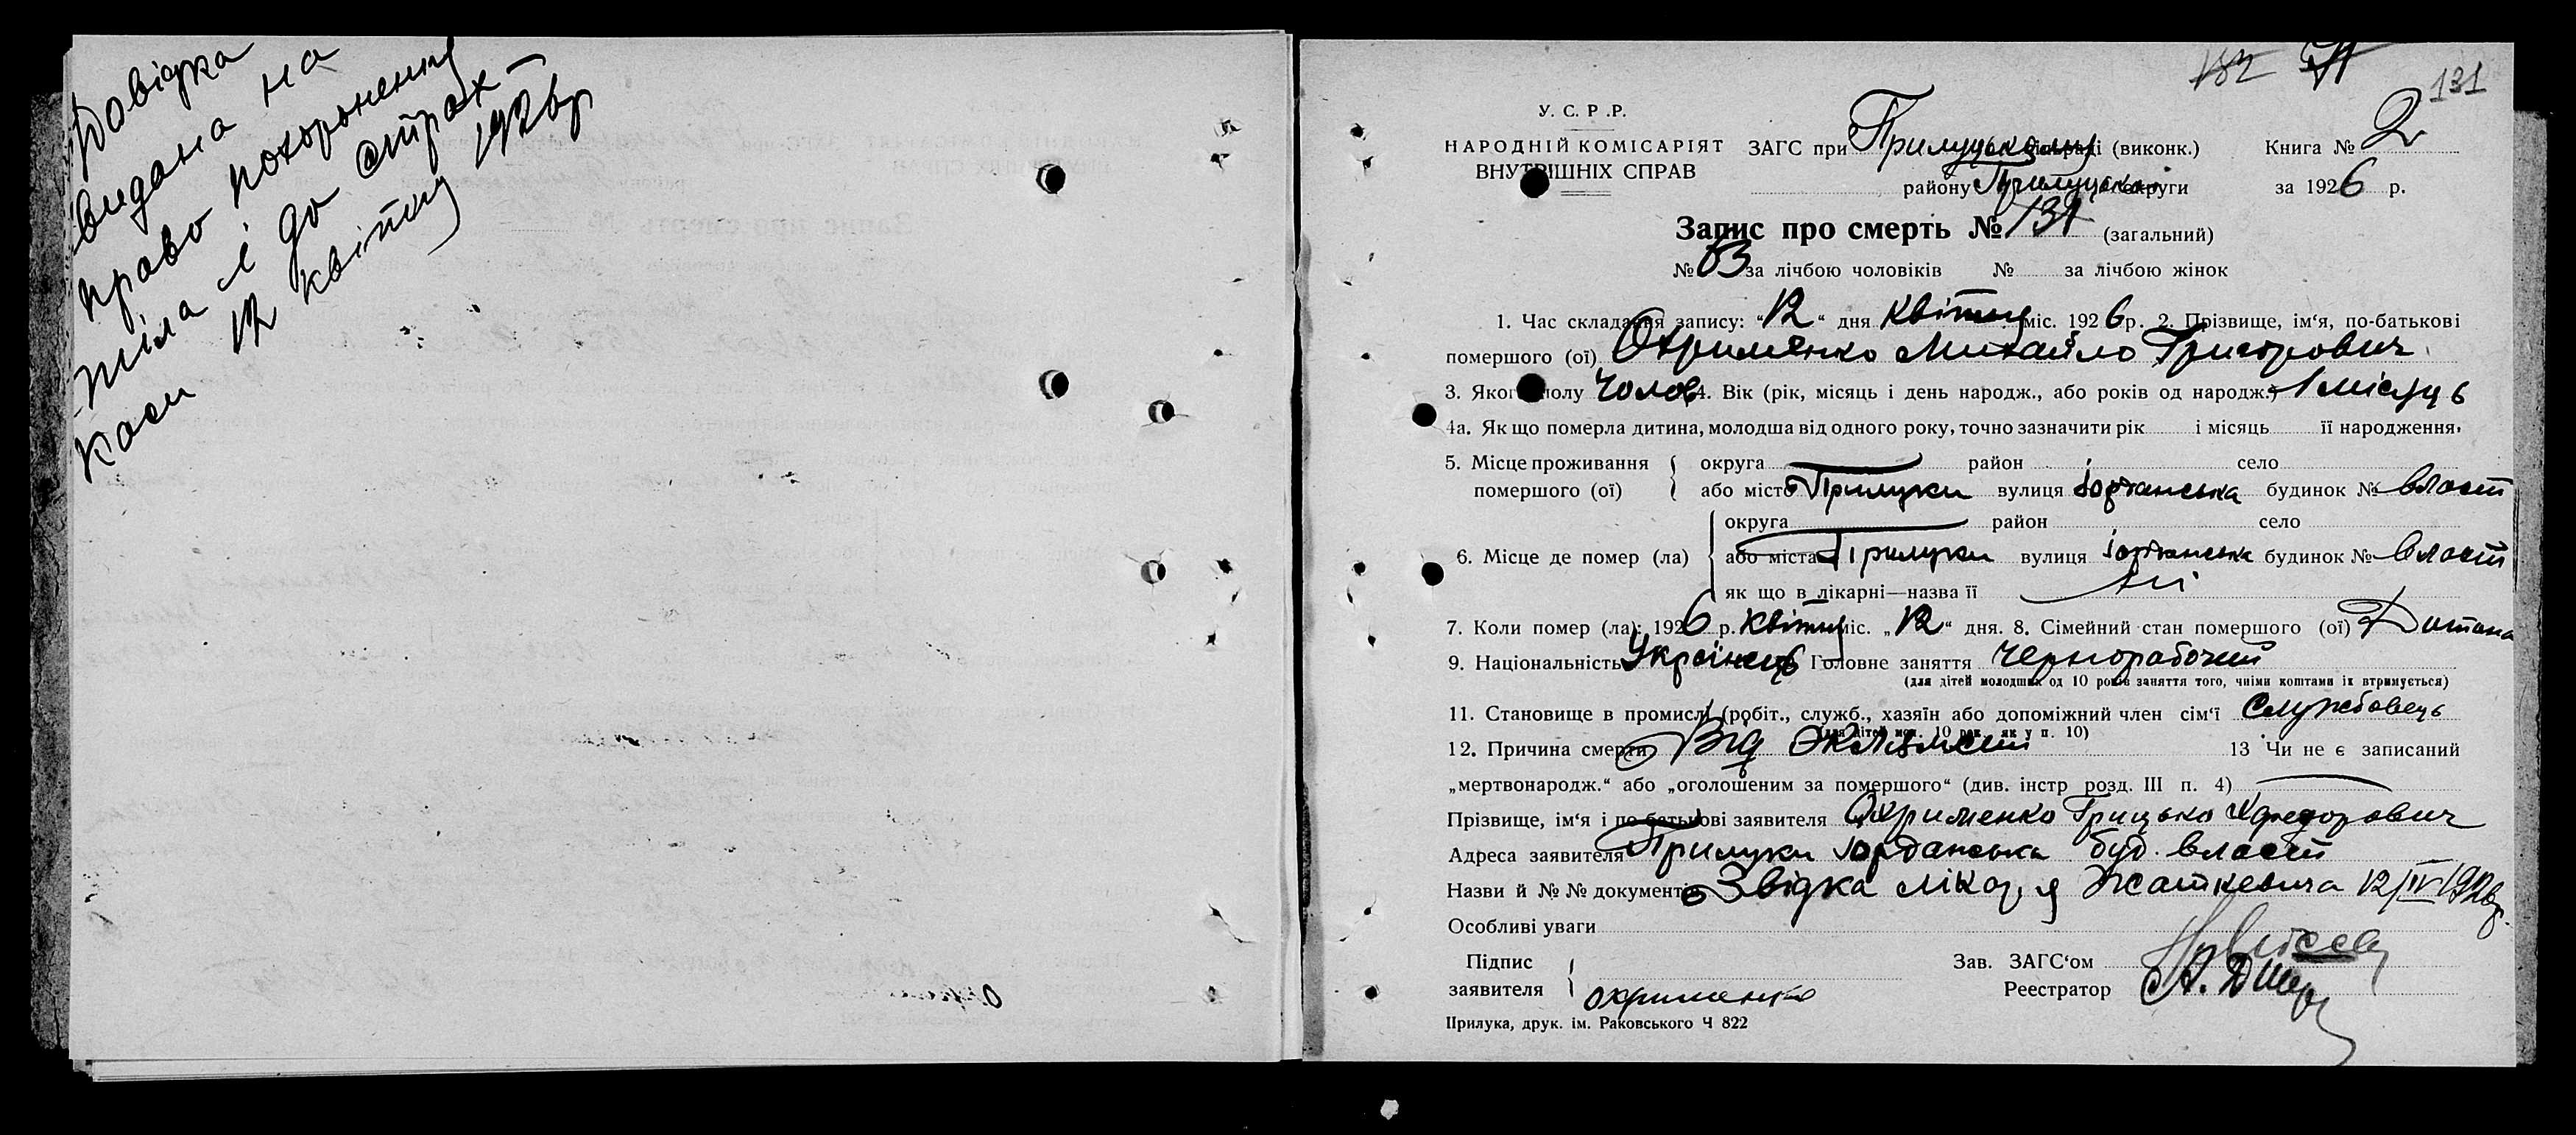 Довідка
видана на
право похоронення
тіла і до страх-
каси
12 квітня 1926 р
132
131
У. С. Р .Р.
НАРОДНІЙ КОМІСАРІЯТ
ВНУТРІШНІХ СПРАВ
ЗАГС при Прилуцькому (виконк.) Книга № 2
району Прилуцької округи за 1926 р.
Запис про смерть № 131 (загальний)
№ 63 за лічбою чоловіків № за лічбою жінок
1. Час складання запису: "12" дня квітня міс. 1926 р. 2. Прізвище, ім'я, по-батькові
померлого (ої) Охрименко Михайло Григорович
3. Якого полу Чолов 4. Вік (рік, місяць і день народж., або років од народж.) 1 місяць
4а. Якщо померла дитина, молодша від одного року, точно зазначити рік і місяць її народження.
5. Місце проживання округа район село
помершого (ої) або місто Прилуки вулиця Іорданська будинок № власн
округа район село
6. Місце де помер (ла) або міста Прилуки вулиця Іорданська будинок № власн
як що в лікарні—назва її Ні
7. Коли помер (ла): 1926 р. квітня міс. „12" дня. 8. Сімейний стан помершого (ої) Дитина
9. Національність Українець Головне заняття Чернорабочий
(для дітей молодших од 10 років заняття того, чиїми коштами їх втримується)
11. Становище в промислі (робіт., служб., хазяїн або допоміжний член сім'ї Службовець
(для дітей мол. 10 рок. як у п. 10)
12. Причина смерти Від Эклямсии 13 Чи не є записаний
„мертвонародж." або „оголошеним за помершого" (див. інстр розд. III п. 4)
Прізвище, ім'я і по батькові заявителя Охрименко Грицько Хфедорович
Адреса заявителя Прилуки Іорданська буд. власн
Назви й №№ документів Звідка лікаря Жаткевича 12/IV 1926 р.
Особливі уваги
Підпис
заявителя Охрименко
Зав. ЗАГС'ом
Реестратор
Прилука, друк. ім. Раковського Ч 822